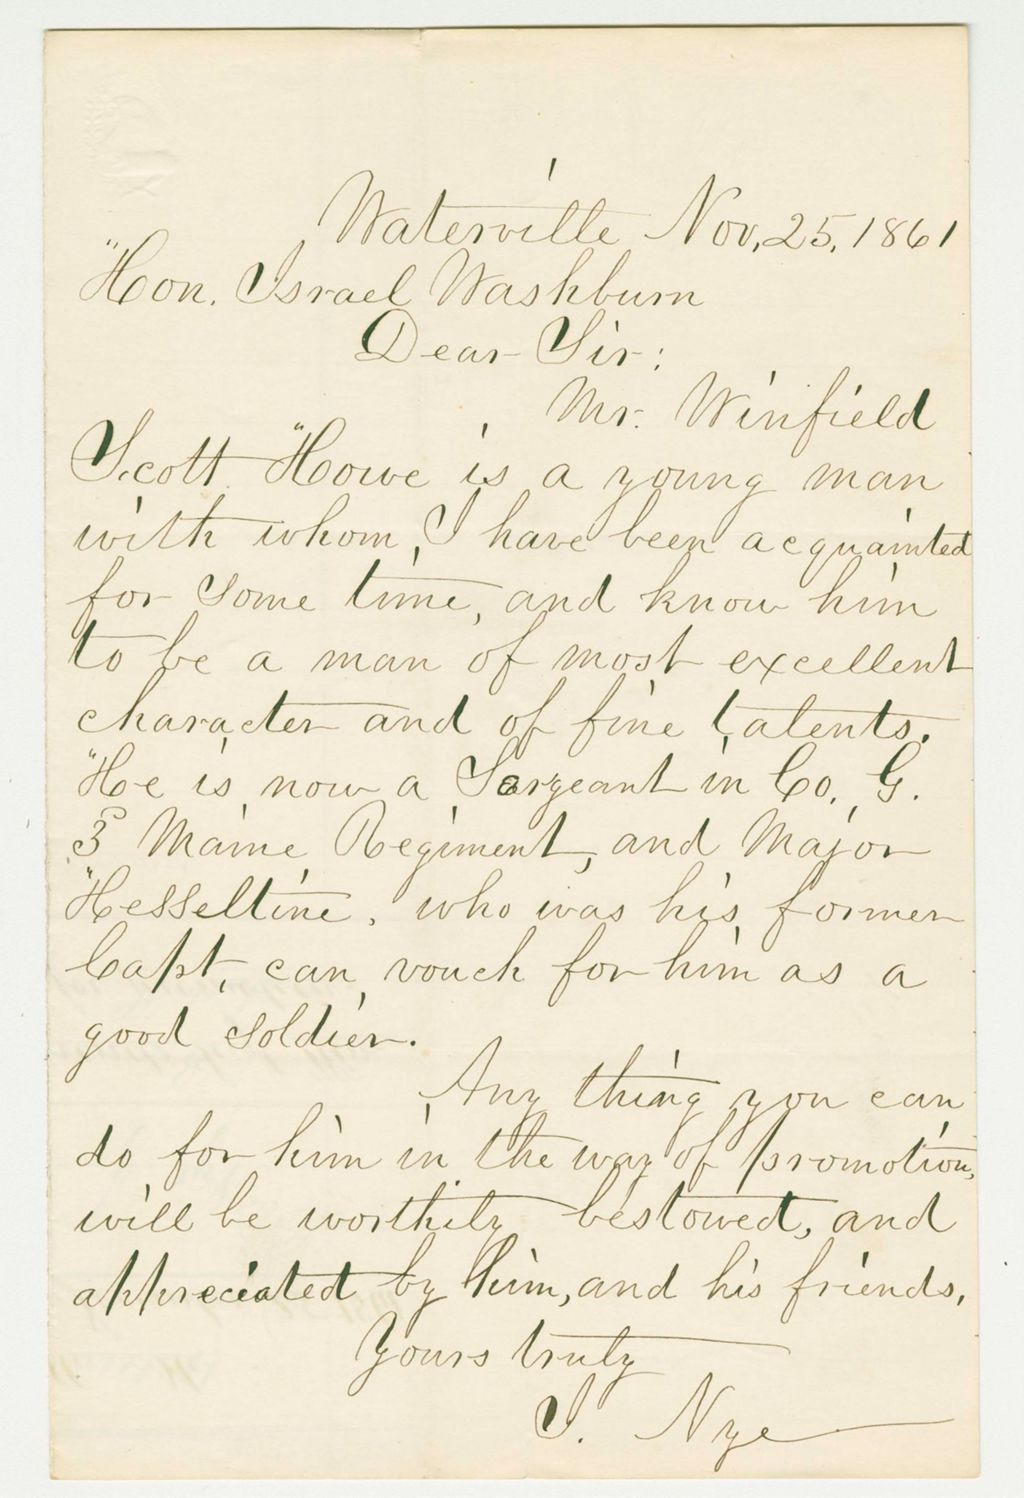 Waterville Nov. 25, 1861
Hon. Israel Washburn
Dear Sir:
Mr. Winfield
Scott Howe is a young man
with whom, I have been acquainted
for some time, and know him
to be a man of most excellent
character and of fine talents.
He is now a Sargeant in Co. G.
3 Maine Regiment, and Major
Hesseltine, who was his former
Capt, can vouch for him as a
good soldier.
Any thing you can
do for him in the way of promotion,
will be worthily bestowed, and
appreciated by him, and his friends.
Yours truly
J. Nye